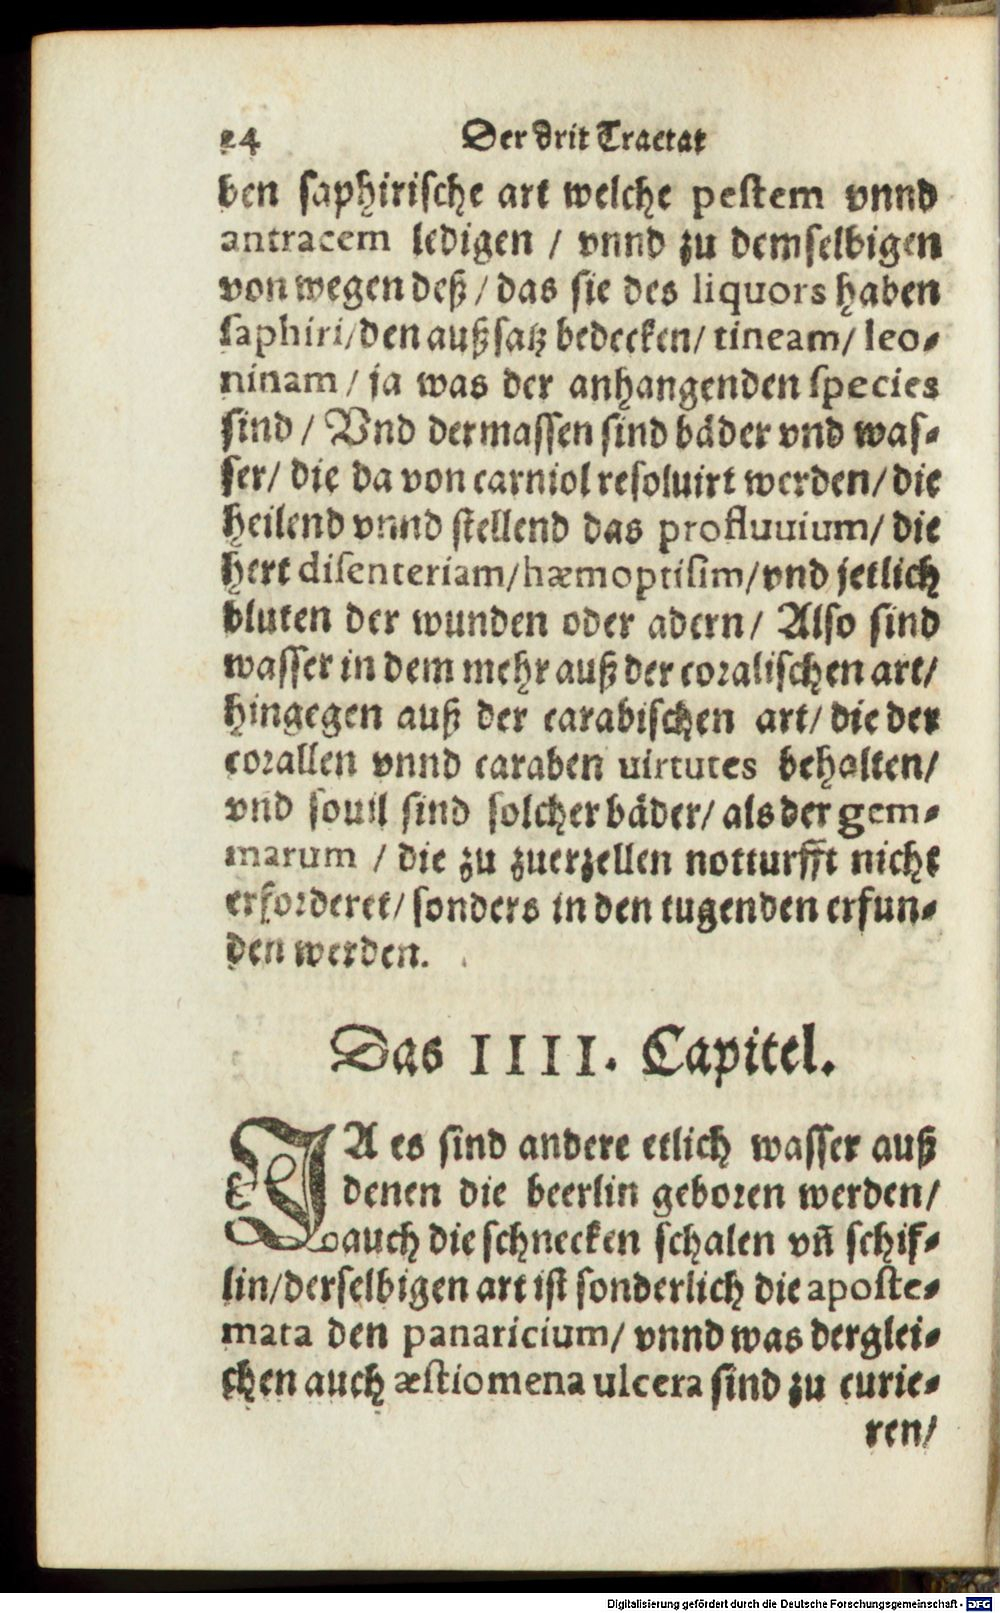 24 Der drit Tractat
ben saphirische art welche pestem vnnd
antracem ledigen / vnnd zu demselbigen
von wegen deß / das sie des liquors haben
saphiri/den außsatz bedecken/ tineam/ leo-
ninam / ja was der anhangenden species
sind / Vnd dermassen sind bäder vnd was-
ser/ die da von carniol resoluirt werden/ die
heilend vnnd stellend das profluuium/ die
hert disenteriam/hæmoptisim/vnd jetlich
bluten der wunden oder adern/ Also sind
wasser in dem mehr auß der coralischen art/
hingegen auß der carabischen art/ die der
corallen vnnd caraben uirtutes behalten/
vnd souil sind solcher bäder/ als der gem-
marum / die zu zuerzellen notturfft nicht
erforderet/ sonders in den tugenden erfun-
den werden.
Das IIII. Capitel.
JA es sind andere etlich wasser auß
denen die beerlin geboren werden/
auch die schnecken schalen vñ schif-
lin/derselbigen art ist sonderlich die aposte-
mata den panaricium/ vnnd was derglei-
chen auch æstiomena ulcera sind zu curie-
ren/
Digitalisierung gefördert durch die Deutsche Forschungsgemeinschaft - DFG